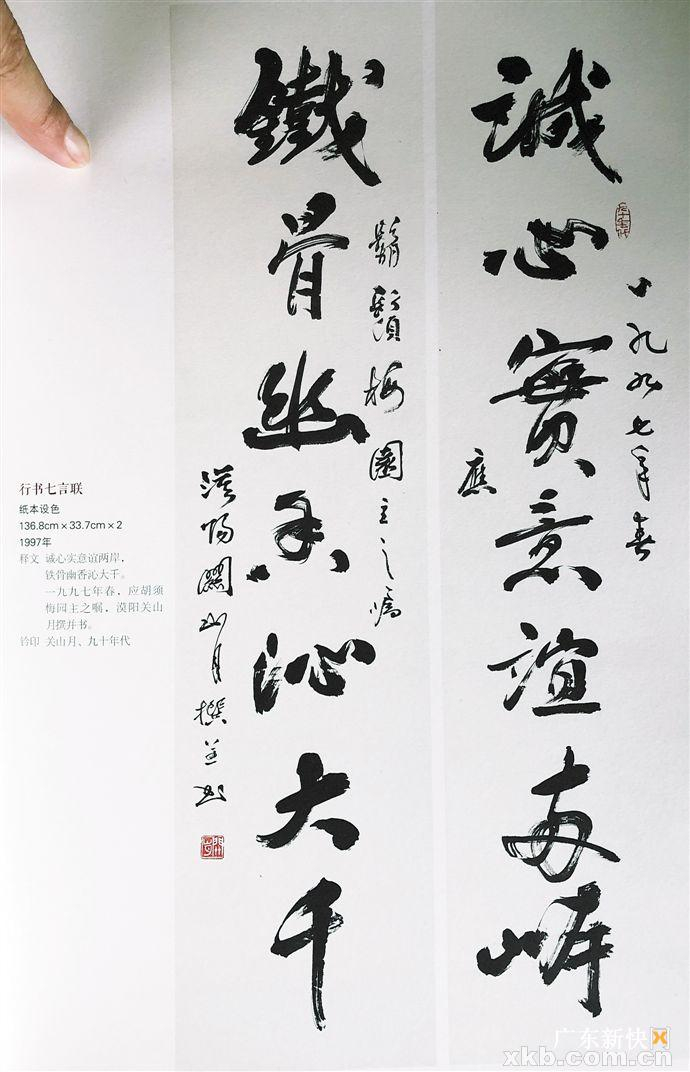 誠心實意誼兩岸
一九九七年春
應
鐵骨幽香沁大千
鬍鬚梅園主之囑
漠陽關山月撰並书
九十年代
行书七言联
纸本设色
136.8cm×33.7cm×2
1997年
释文 诚心实意谊两岸，
铁骨幽香沁大千。
一九九七年春，应胡须
梅园主之嘱，漠阳关山
月撰并书。
钤印 关山月、九十年代
广东新快网
xkb.com.cn